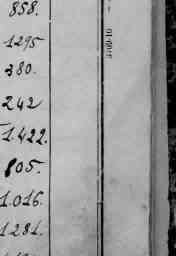 858.
1295
380.
242
1.422.
805.
1.016.
1281.